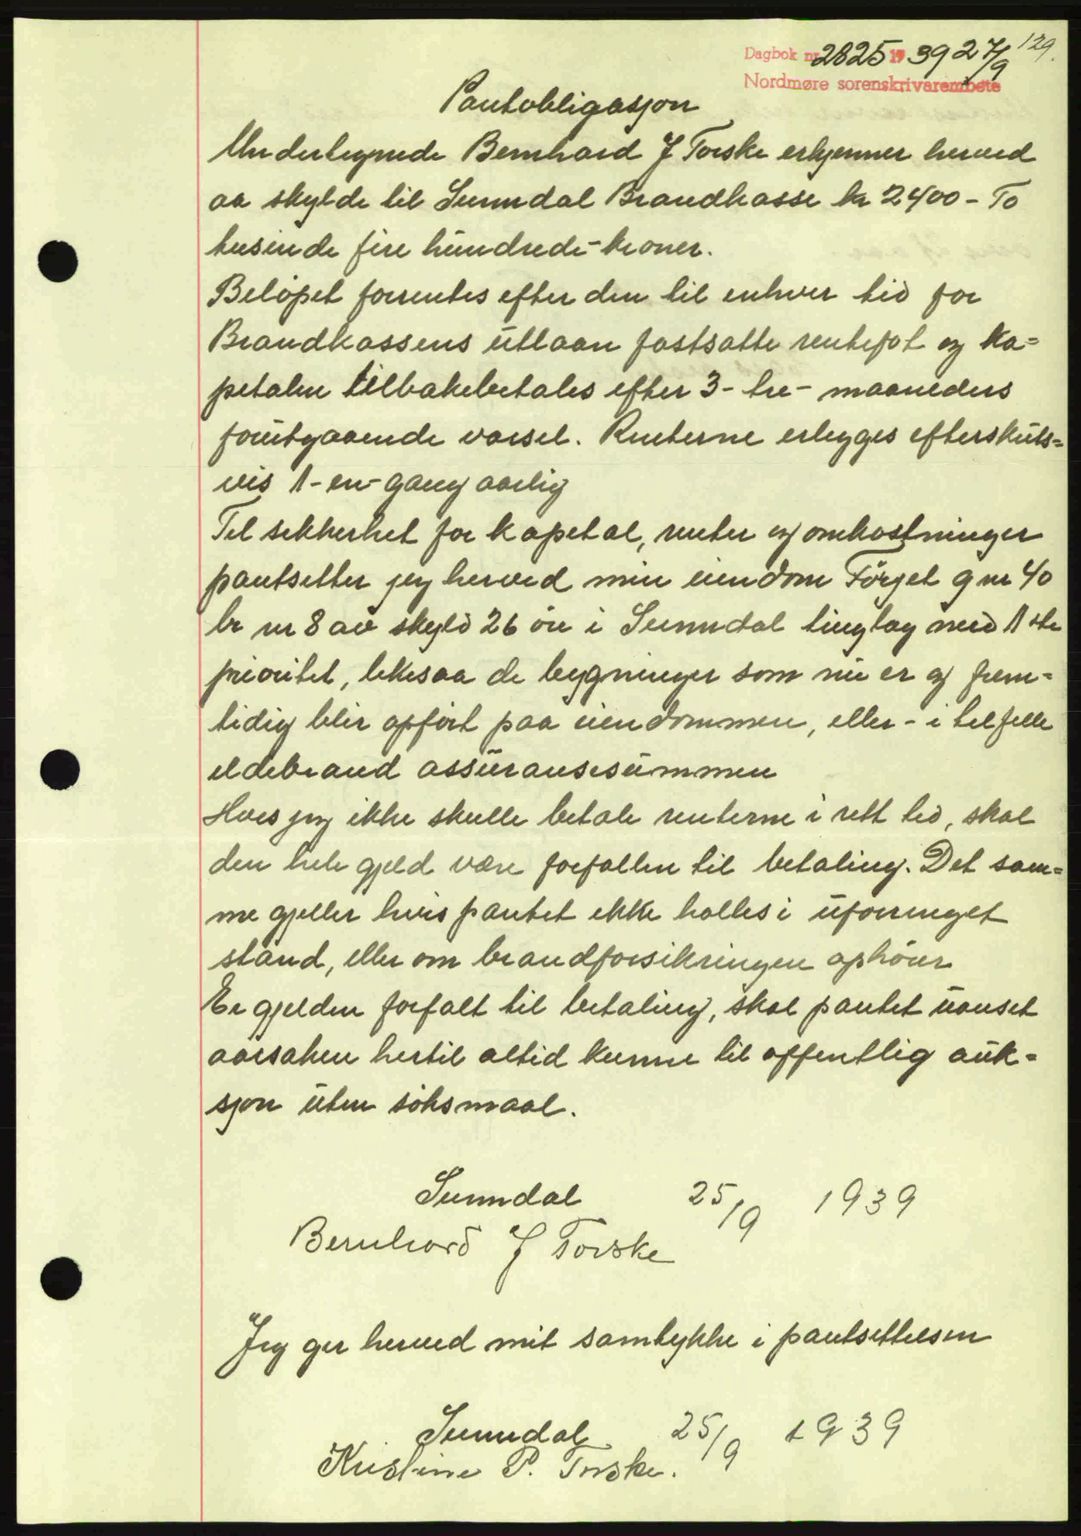 129.
Dagbok nr 2825 1939 27/9
Nordmøre sorenskrivarembete
Pantobligasjon
Undertegnede Bernhard J Torske erkjenner herved
aa skylde til Sunndal Brandkasse kr 2400 - To
tusinde fire hundrede - kroner.
Beløpet forrentes efter den til enhver tid for
Brandkassens utlaan fastsatte rentefot og Ka=
petalen tilbakebetales efter 3 - tre - maaneders
forutgaaende varsel. Renterne erlegges efterskuts=
vis 1 - en - gang aarlig
Til sikkerhet for kapetal, renter og omkostninger
pantsetter jeg herved min eiendom Førget g nr 40
br nr 8 av skyld 26 øre i Sunndal tinglag med 1ste
prioritet, likesaa de bygninger som nu er og frem=
tidig blir opført paa eiendommen, eller - i tilfelle
ildebrand assuransesummen
Hvis jeg ikke skulle betale renterne i rett tid, skal
den hele gjeld være forfallen til betaling. Det sam=
me gjeller hvis pantet ikke holles i uforringet
stand, eller om brandforsikringen ophører
Er gjelden forfalt til betaling, skal pantet uanset
aarsaken hertil altid kunne til offentlig auk=
sjon uten søksmaal.
Sunndal 25/9 1939
Bernhard J Torske
Jeg ger herved mit samtykke i pantsettelsen
Sunndal 25/9 1939
Kristine P. Torske.